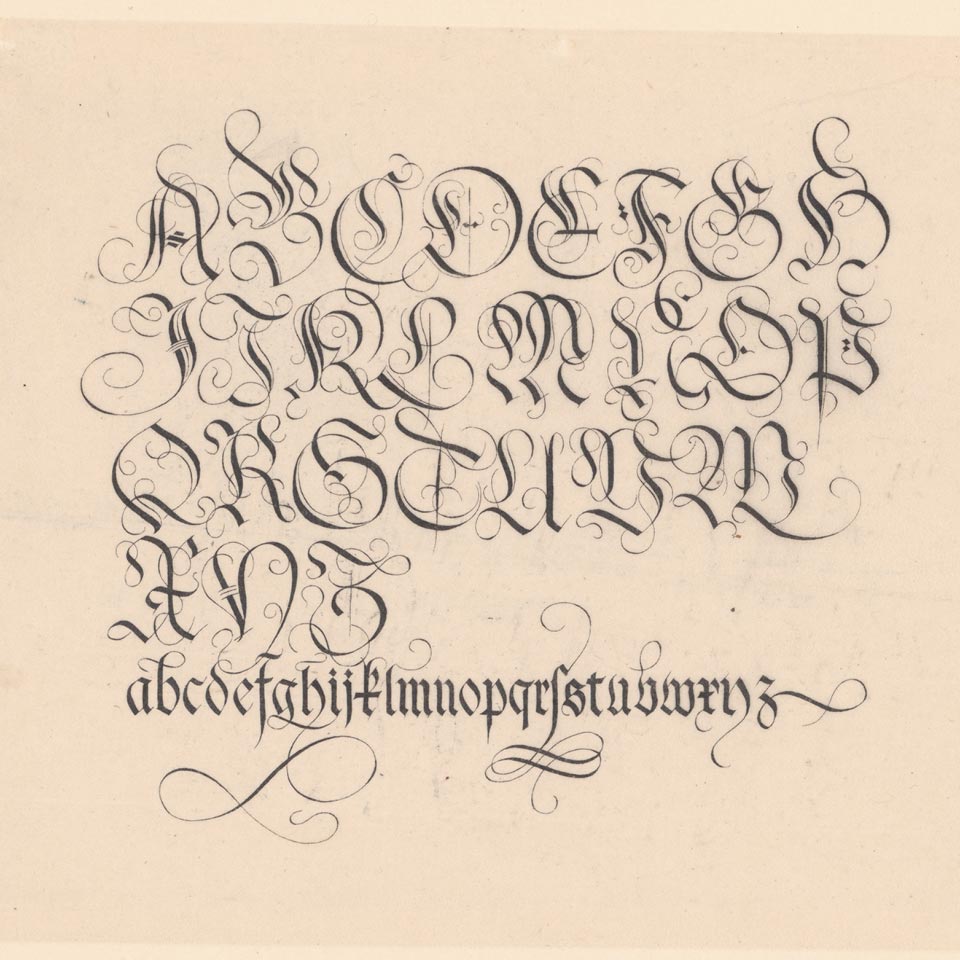 ABCDEFGH
IJKLMNOP
QRSTUVW
XYZ
abcdefghijklmnopqrſstuvwxyz